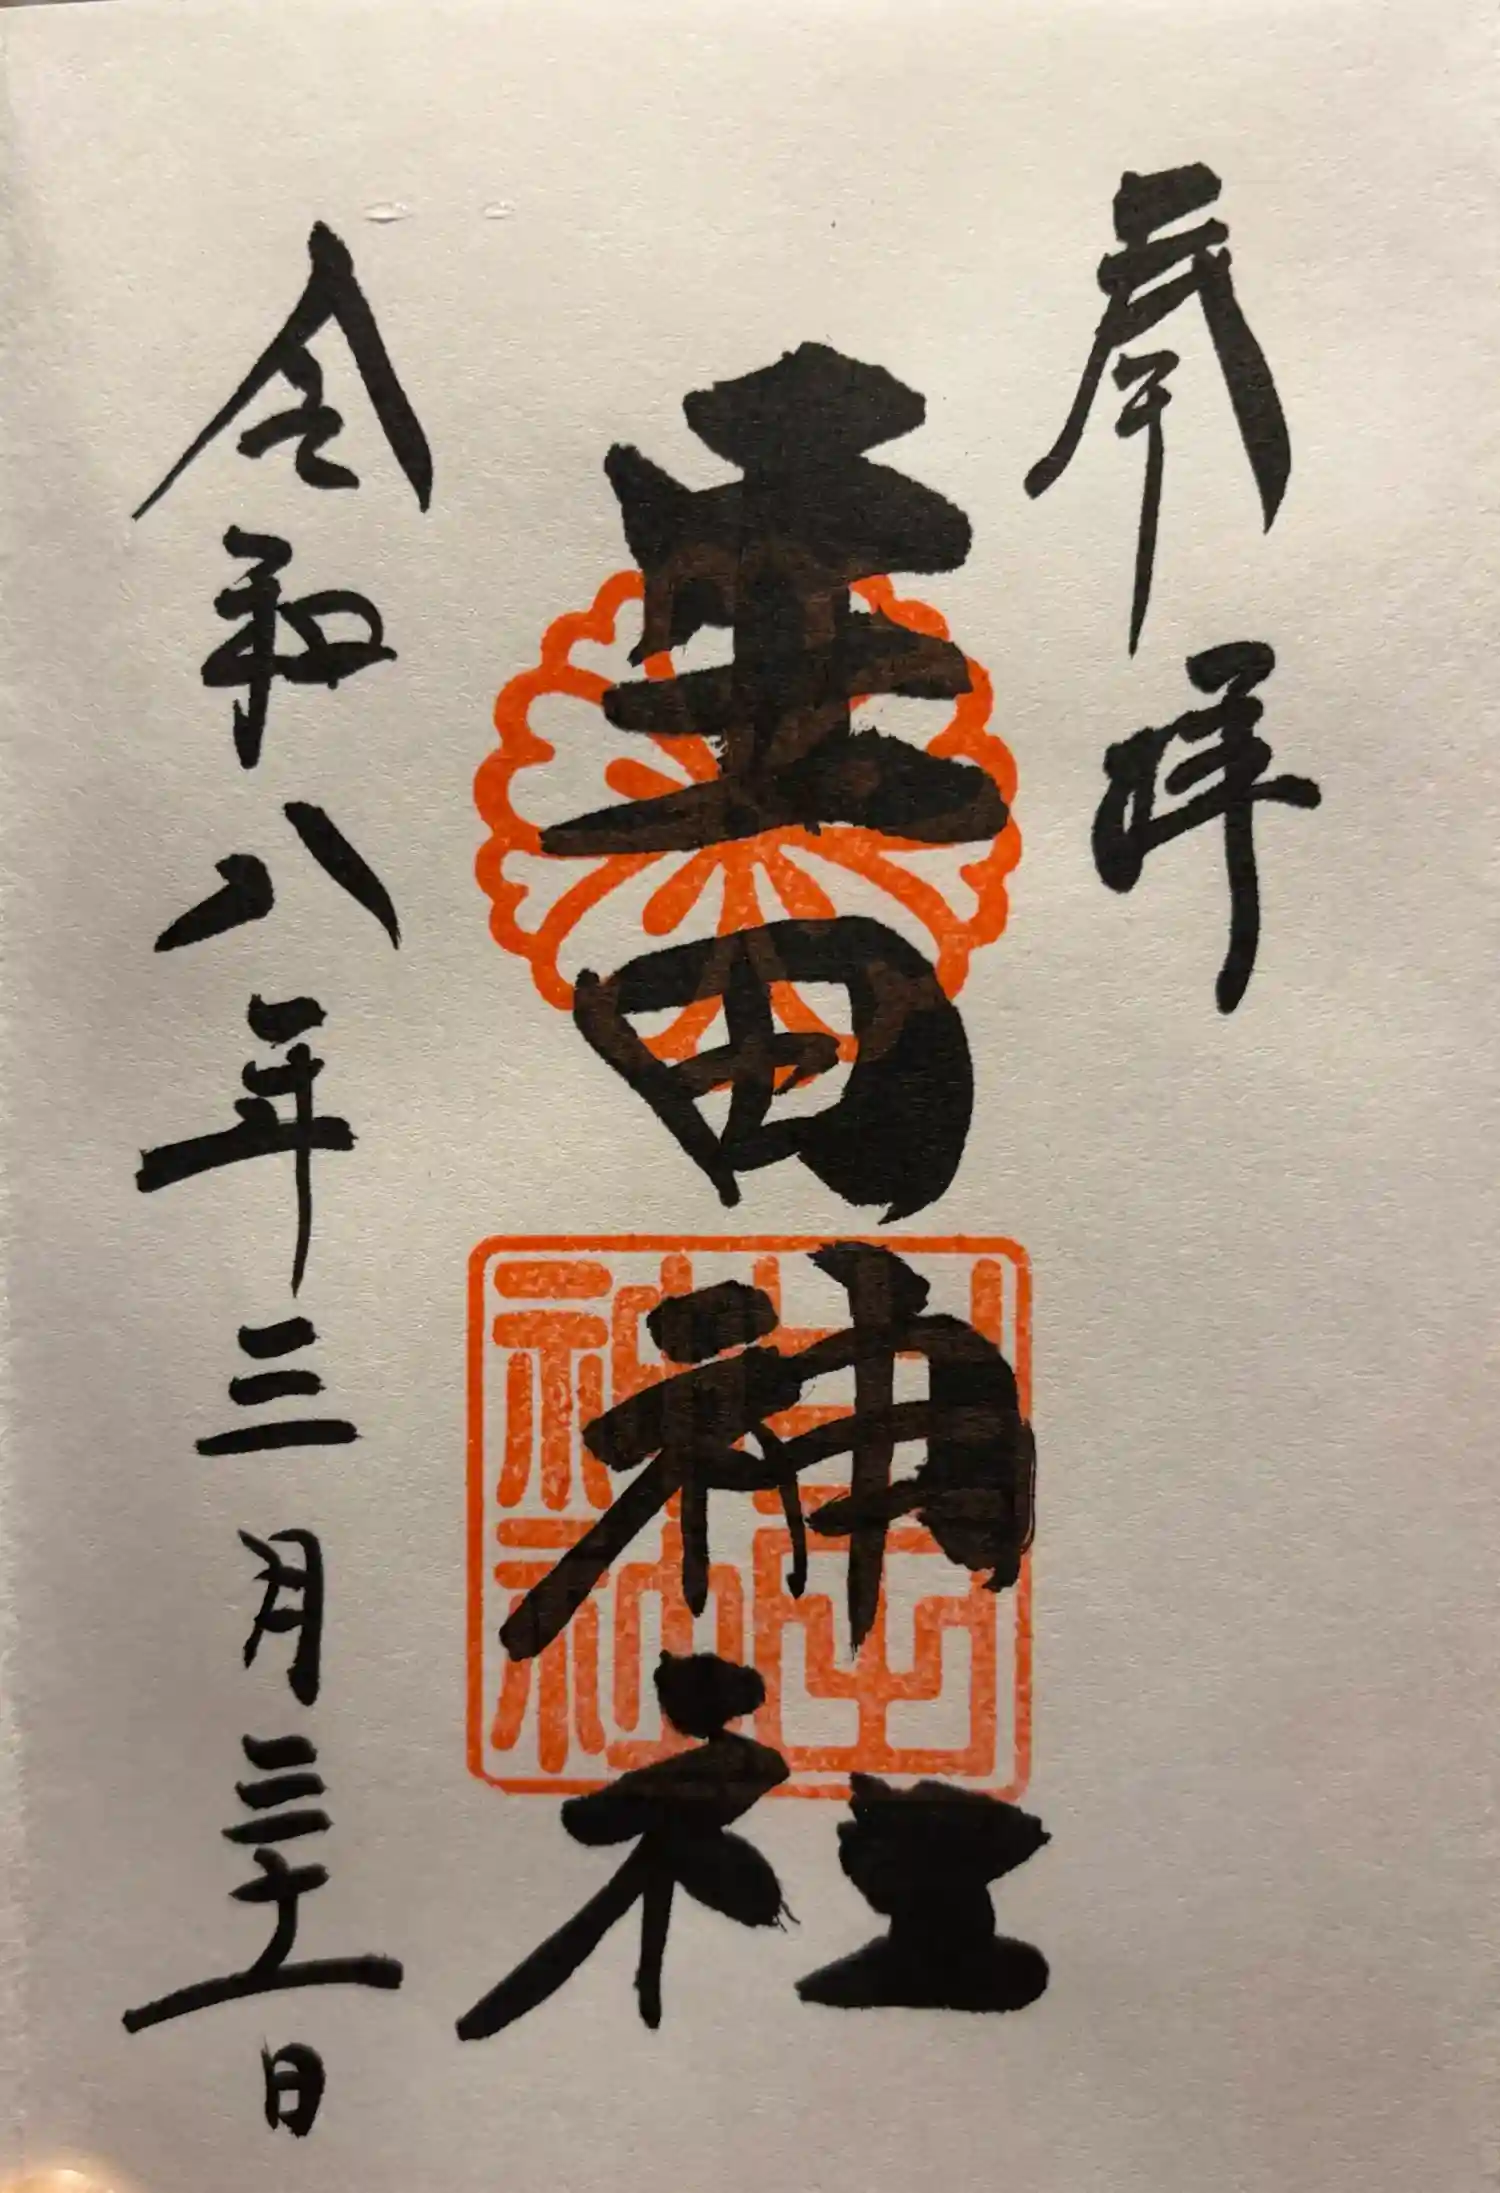 奉拝
田神社
令和八年三月三十一日
神社